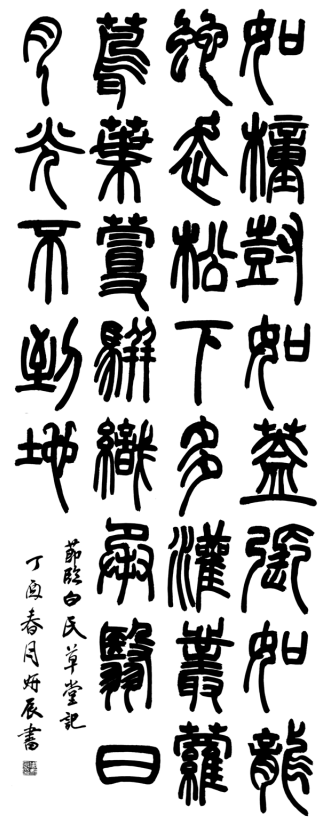 如橦尌如蓋張如龍
蛇走松下多灌叢蘿
蔦葉蔓駢織承翳日
月光不到地
節臨白氏草堂記
丁酉春月妍辰書